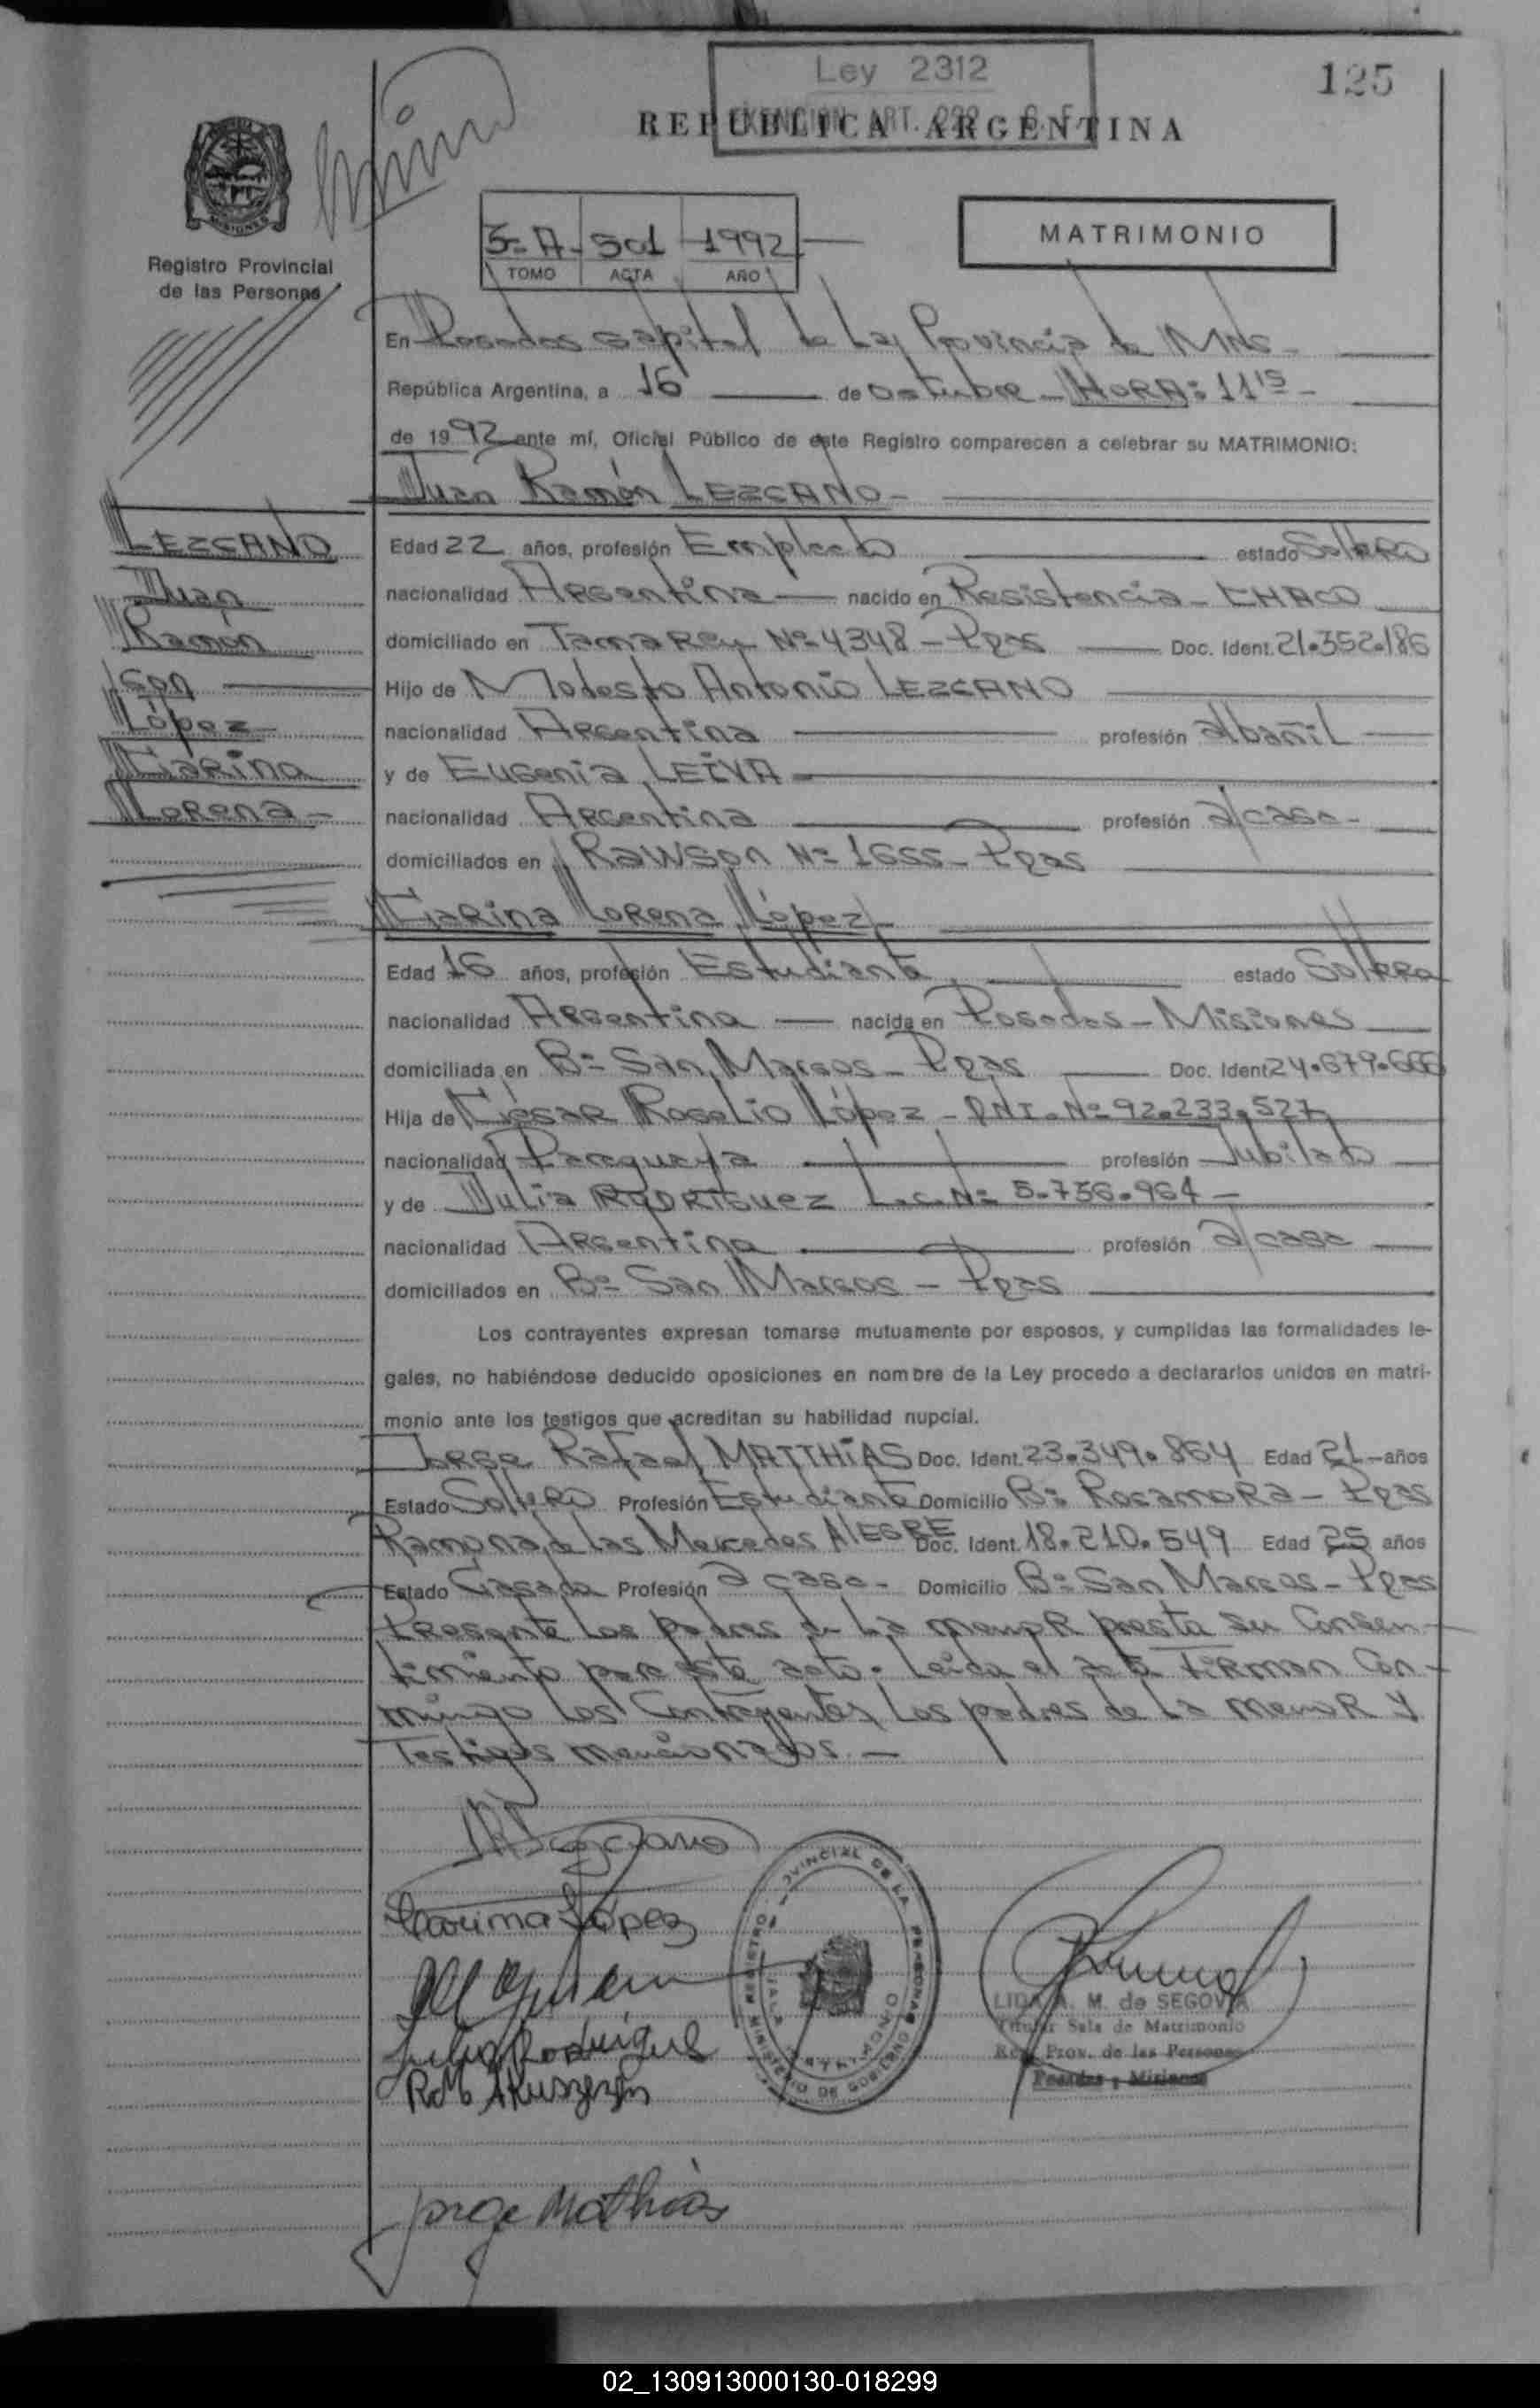 Ley 2312
125
REPUBLICA ARGENTINA
MISIONES
Registro Provincial
de las Personas
5= A - 501 1992
TOMO ACTA AÑO
MATRIMONIO
En Posadas capital de La Provincia de Mnes -
República Argentina, a 16 de octubre - HORA: 11 15 -
de 1992 ante mí, Oficial Público de este Registro comparecen a celebrar su MATRIMONIO:
Juan Ramón LEZCANO -
LEZCANO
Juan
Ramón
Con
López
Carina
Lorena -
Edad 22 años, profesión Empleado estado Soltero
nacionalidad Argentina nacido en Resistencia - CHACO
domiciliado en Tamarey Nº 4348 - Pdas Doc. Ident. 21.352.186
Hijo de Modesto Antonio LEZCANO
nacionalidad Argentina profesión albañil
y de Eugenia LEIVA -
nacionalidad Argentina profesión a/casa -
domiciliados en Rawson Nº 1655 - Pdas
Carina Lorena López -
Edad 16 años, profesión Estudiante estado Soltera
nacionalidad Argentina nacida en Posadas - Misiones
domiciliada en Bº San Marcos - Pdas Doc. Ident 24.679.666
Hija de César Rogelio López - DNI. Nº 92.233.527
nacionalidad Paraguaya profesión Jubilado
y de Julia RODRIGUEZ L.C. Nº 5.736.964 -
nacionalidad Argentina profesión a/casa
domiciliados en Bº San Marcos - Pdas
Los contrayentes expresan tomarse mutuamente por esposos, y cumplidas las formalidades le-
gales, no habiéndose deducido oposiciones en nombre de la Ley procedo a declararlos unidos en matri-
monio ante los testigos que acreditan su habilidad nupcial.
Jorge Rafael MATTHIAS Doc. Ident. 23.349.864 Edad 21 - años
Estado Soltero Profesión Estudiante Domicilio Bº Rocamora - Pdas
Ramona de las Mercedes ALEGRE Doc. Ident. 18.210.549 Edad 25 años
Estado Casada Profesión a casa - Domicilio Bº San Marcos - Pdas
Presente los padres de La menor presta su Consen-
timiento para este acto. Leida el acta Firman Con-
migo los Contrayentes, Los padres de La menor y
Testigos mencionados. -
Carina López
Julia Rodriguez
REGISTRO PROVINCIAL DE LA PERSONAS
MINISTERIO DE GOBIERNO
SALA MATRIMONIO
LIDA A. M. de SEGOVIA
Titular Sala de Matrimonio
Reg. Prov. de las Personas
Posadas - Misiones
Jorge Mathias
02_130913000130-018299